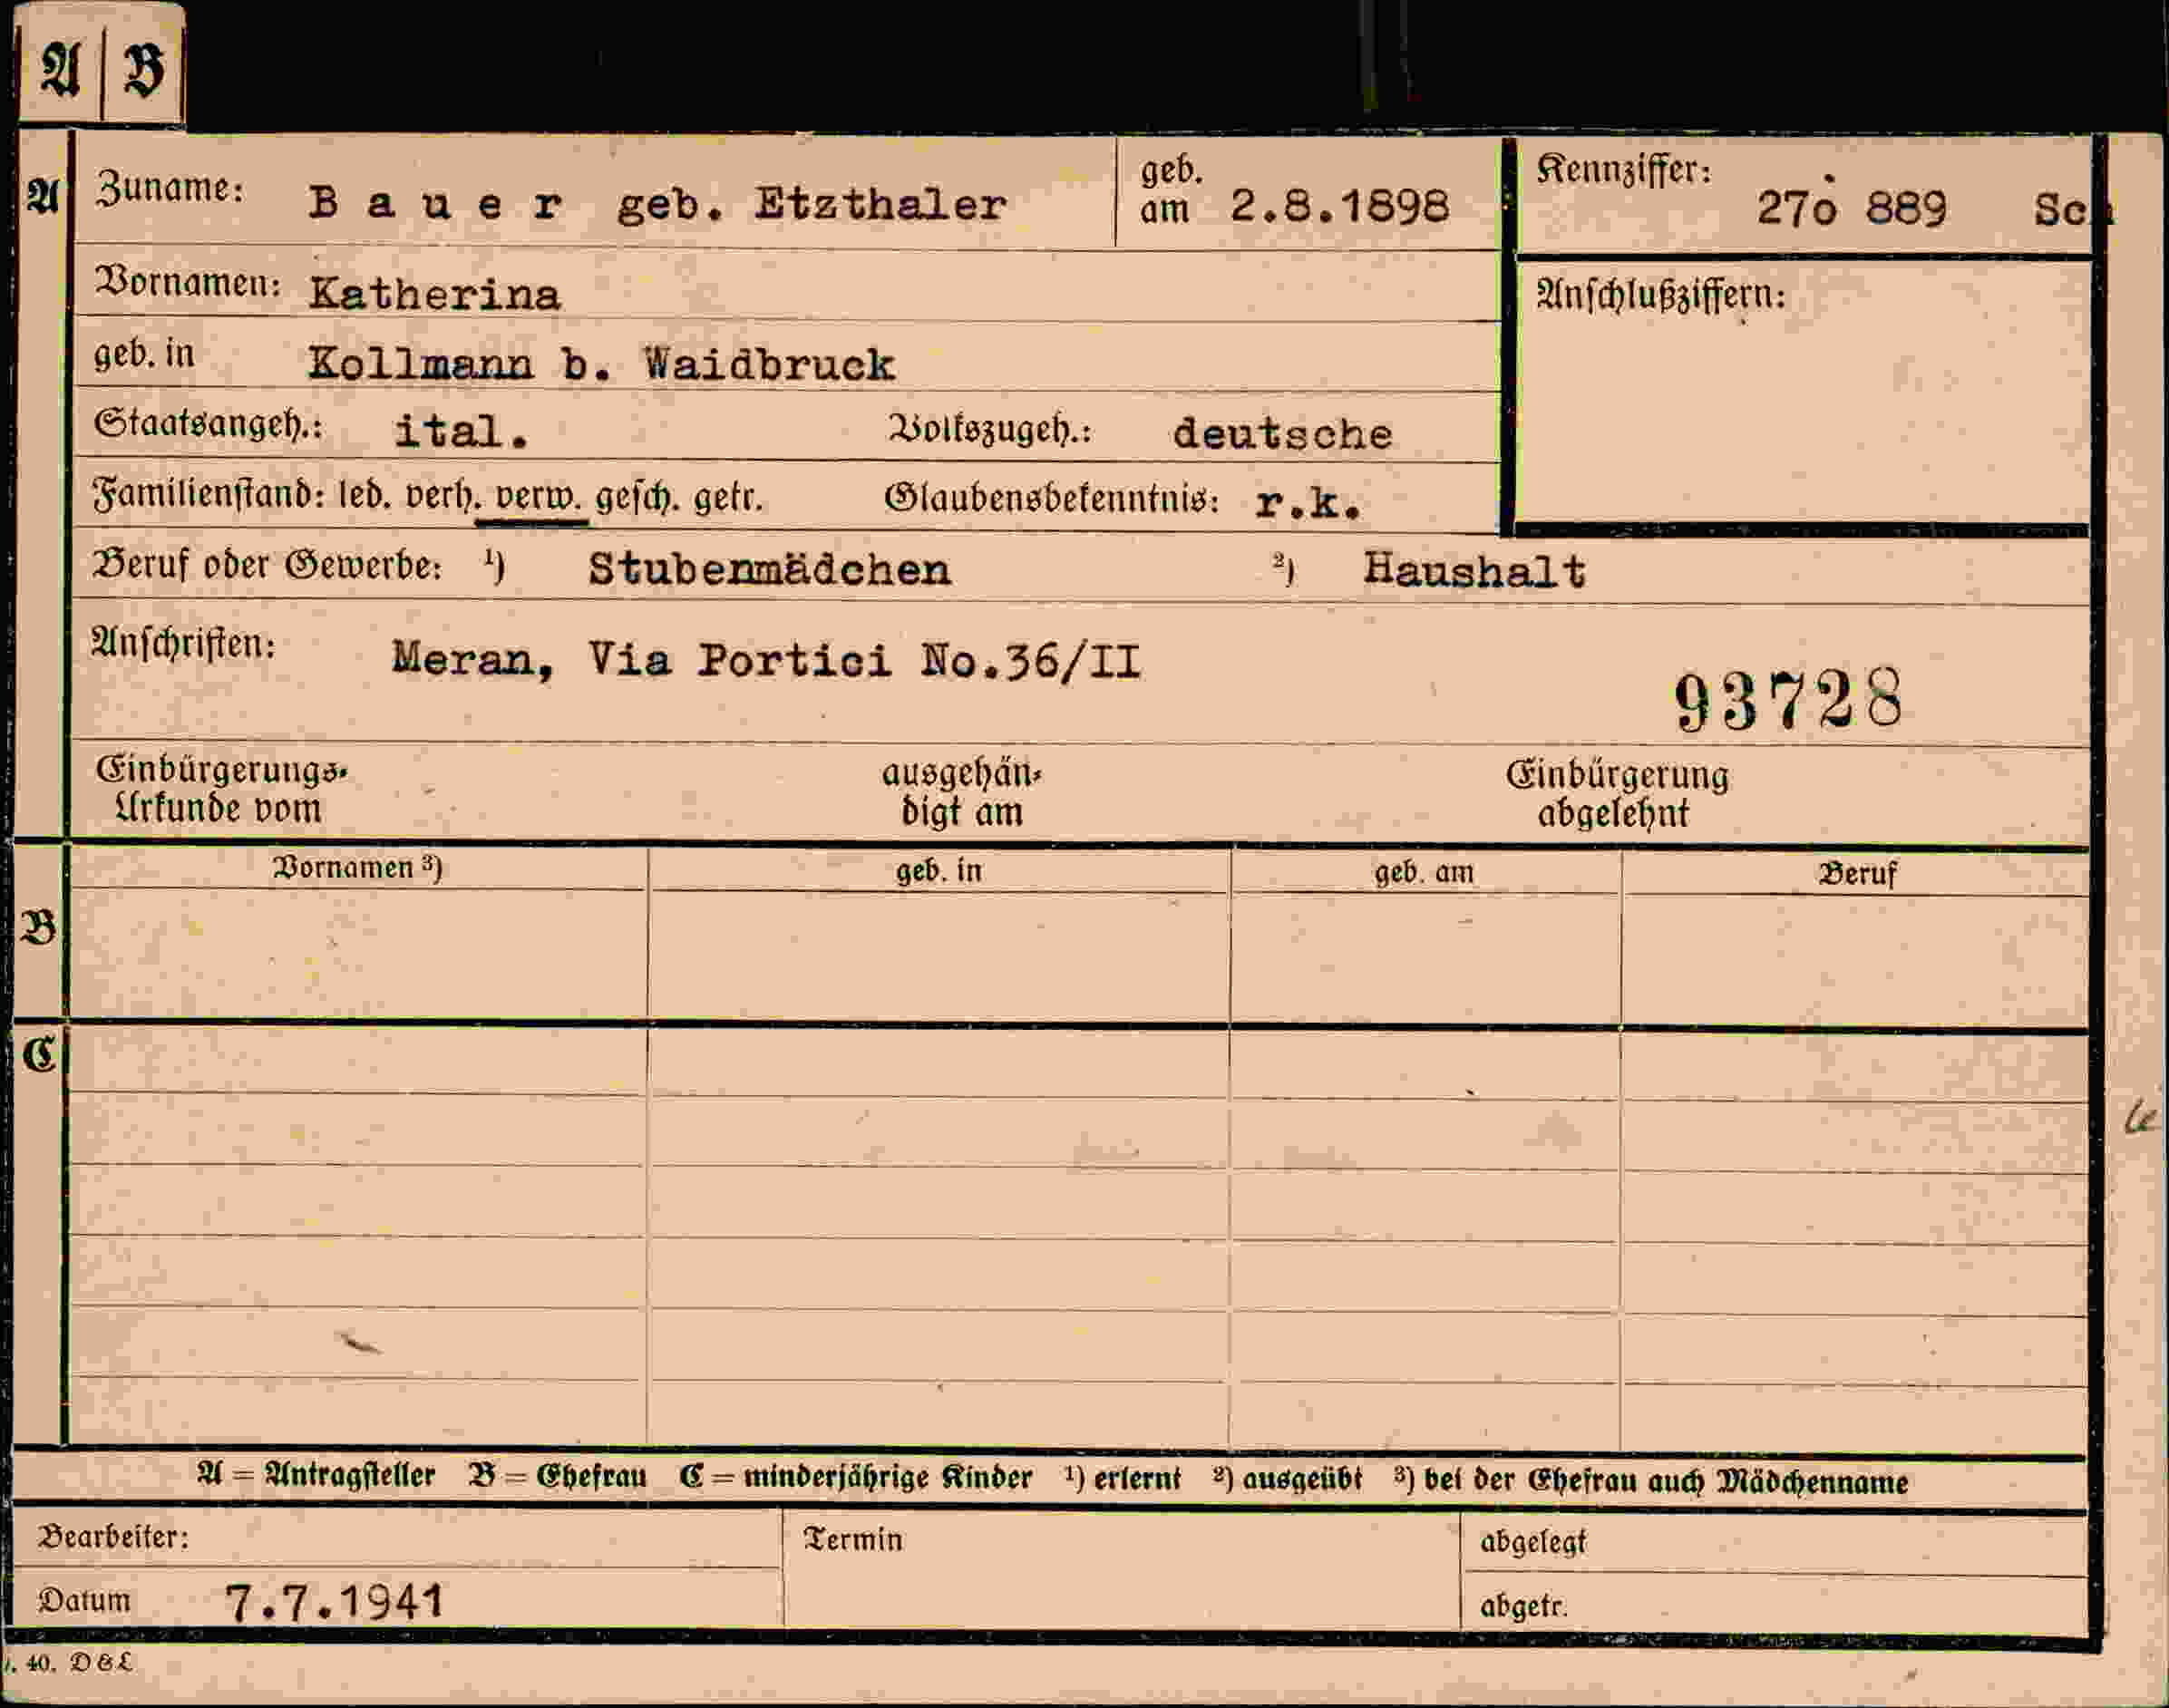 A B
A Zuname: B a u e r geb. Etzthaler geb. am 2.8.1898 Kennziffer: 27o 889 Sch
Vornamen: Katherina Anschlußziffern:
geb. in Kollmann b. Waidbruck
Staatsangeh.: ital. Volkszugeh.: deutsche
Familienstand: led. verh. verw. gesch. getr. Glaubensbekenntnis: r.k.
Beruf oder Gewerbe: ¹) Stubenmädchen ²) Haushalt
Anschriften: Meran, Via Portici No.36/II
93728
Einbürgerungs- ausgehän- Einbürgerung
Urkunde vom digt am abgelehnt
Vornamen ³) geb. in geb. am Beruf
B
C
A = Antragsteller B = Ehefrau C = minderjährige Kinder ¹) erlernt ²) ausgeübt ³) bei der Ehefrau auch Mädchenname
Bearbeiter: Termin abgelegt
Datum 7.7.1941 abgetr.
40. D & L